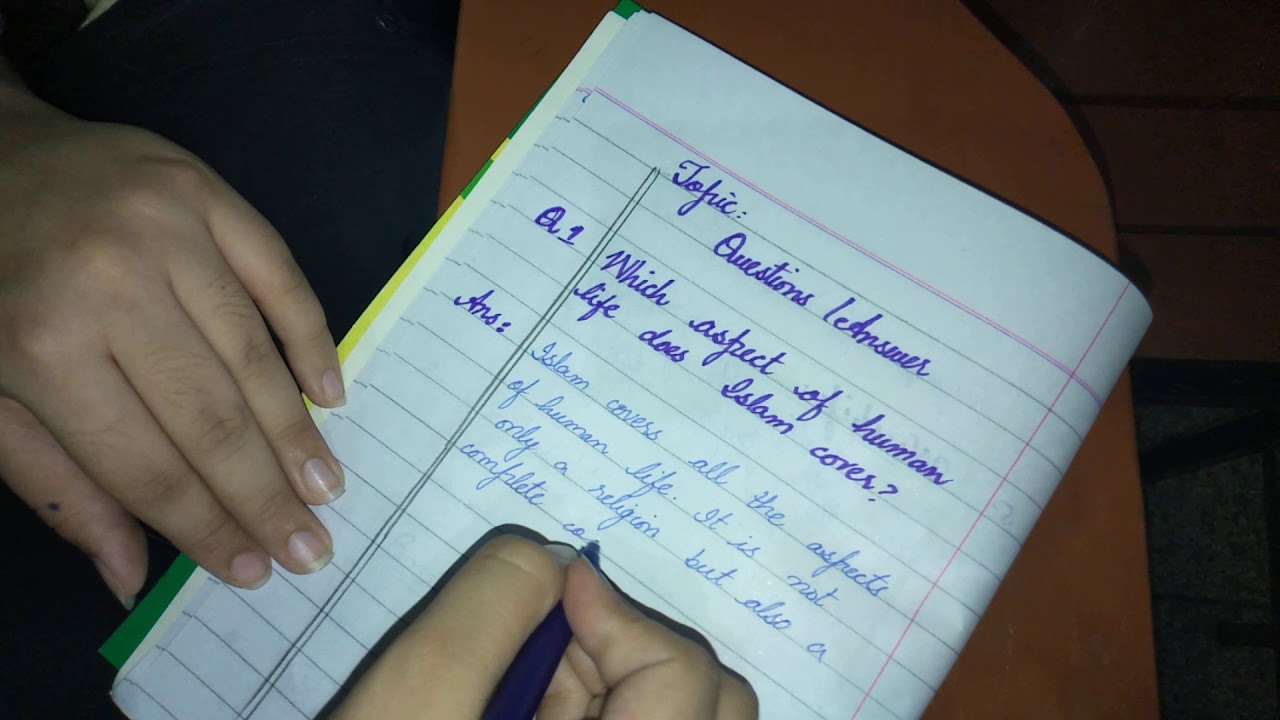 Topic:
Questions/Answer
Q.1 Which aspect of human
life does Islam cover?
Ans: Islam covers all the aspects
of human life. It is not
only a religion but also a
complete co